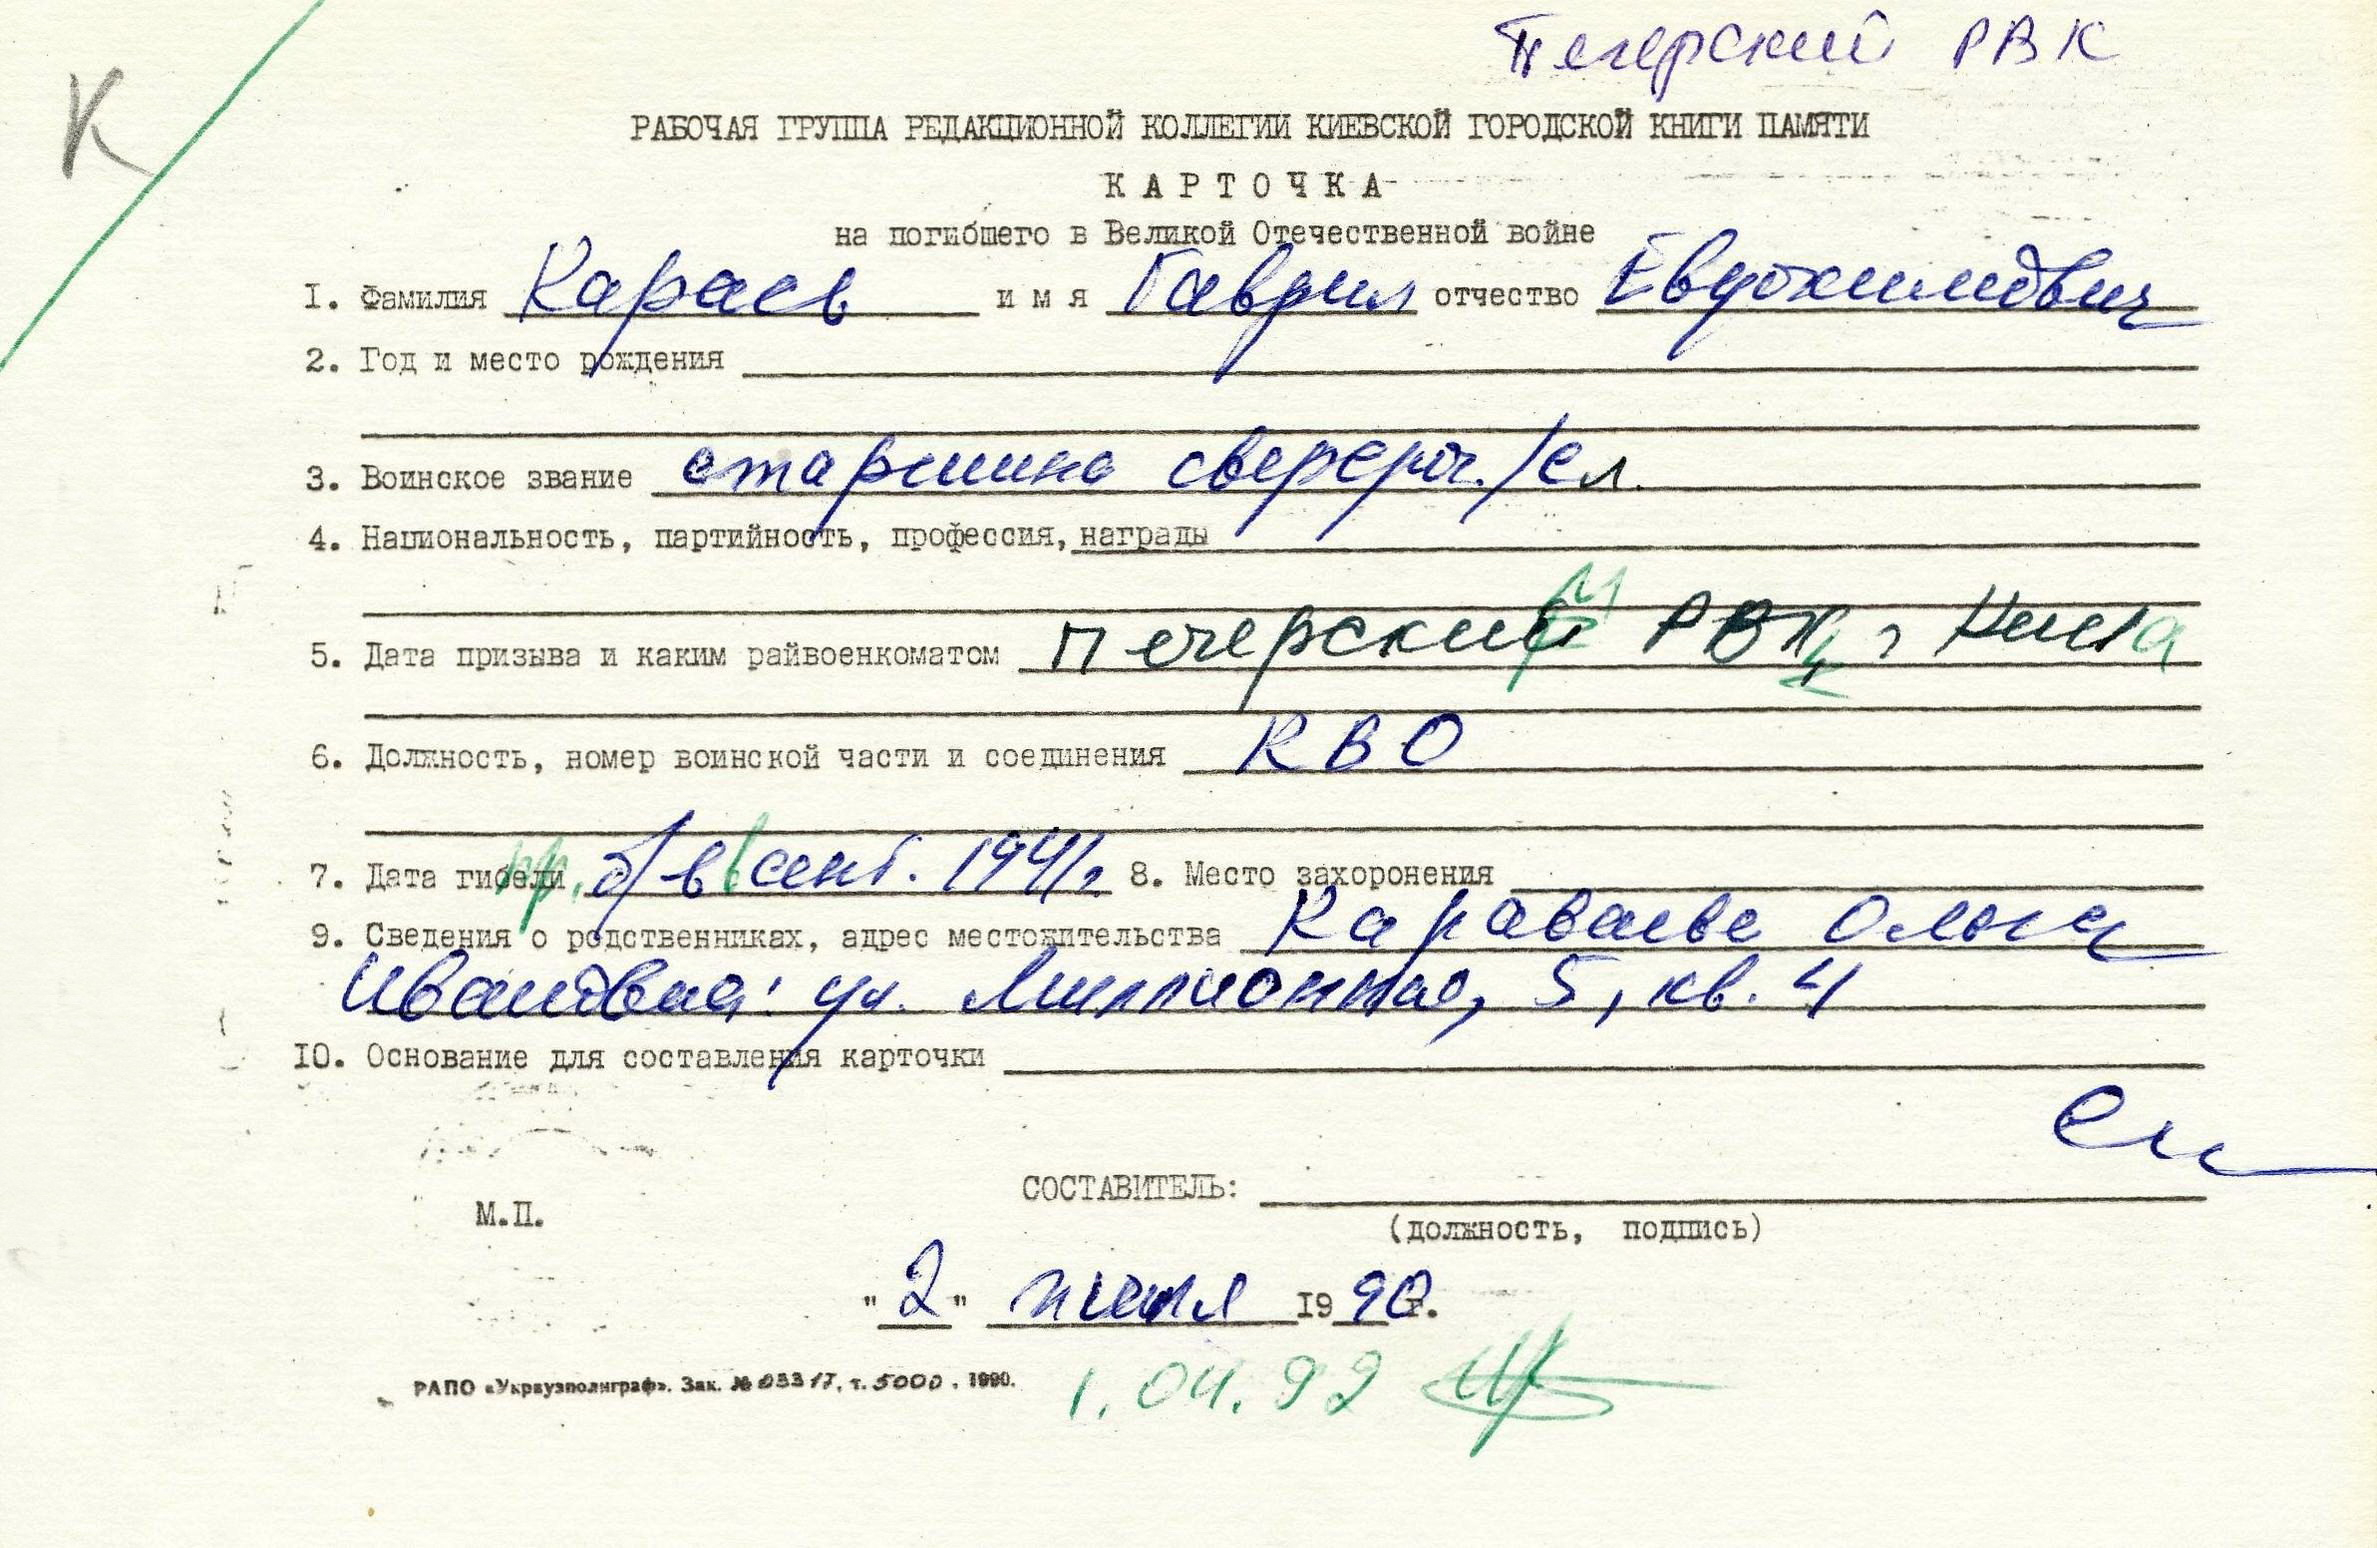 К
Печерский РВК
РАБОЧАЯ ГРУППА РЕДАКЦИОННОЙ КОЛЛЕГИИ КИЕВСКОЙ ГОРОДСКОЙ КНИГИ ПАМЯТИ
КАРТОЧКА
на погибшего в Великой Отечественной войне
1. Фамилия Карась имя Гаврил отчество Евдокимович
2. Год и место рождения
3. Воинское звание старшина сверхсроч./сл.
4. Национальность, партийность, профессия, награды
5. Дата призыва и каким райвоенкоматом Печерский РВК, г Киева
6. Должность, номер воинской части и соединения КВО
7. Дата гибели пр. б/в сент. 1941г. 8. Место захоронения
9. Сведения о родственниках, адрес местожительства Караваева Ольга
Ивановна: ул. Миллионная, 5, кв. 4
10. Основание для составления карточки
СОСТАВИТЕЛЬ:
М.П.
(должность, подпись)
"2" июля 1990г.
РАПО «Укрвузполиграф». Зак. № 03317, т. 5000. 1990.
1.04.92